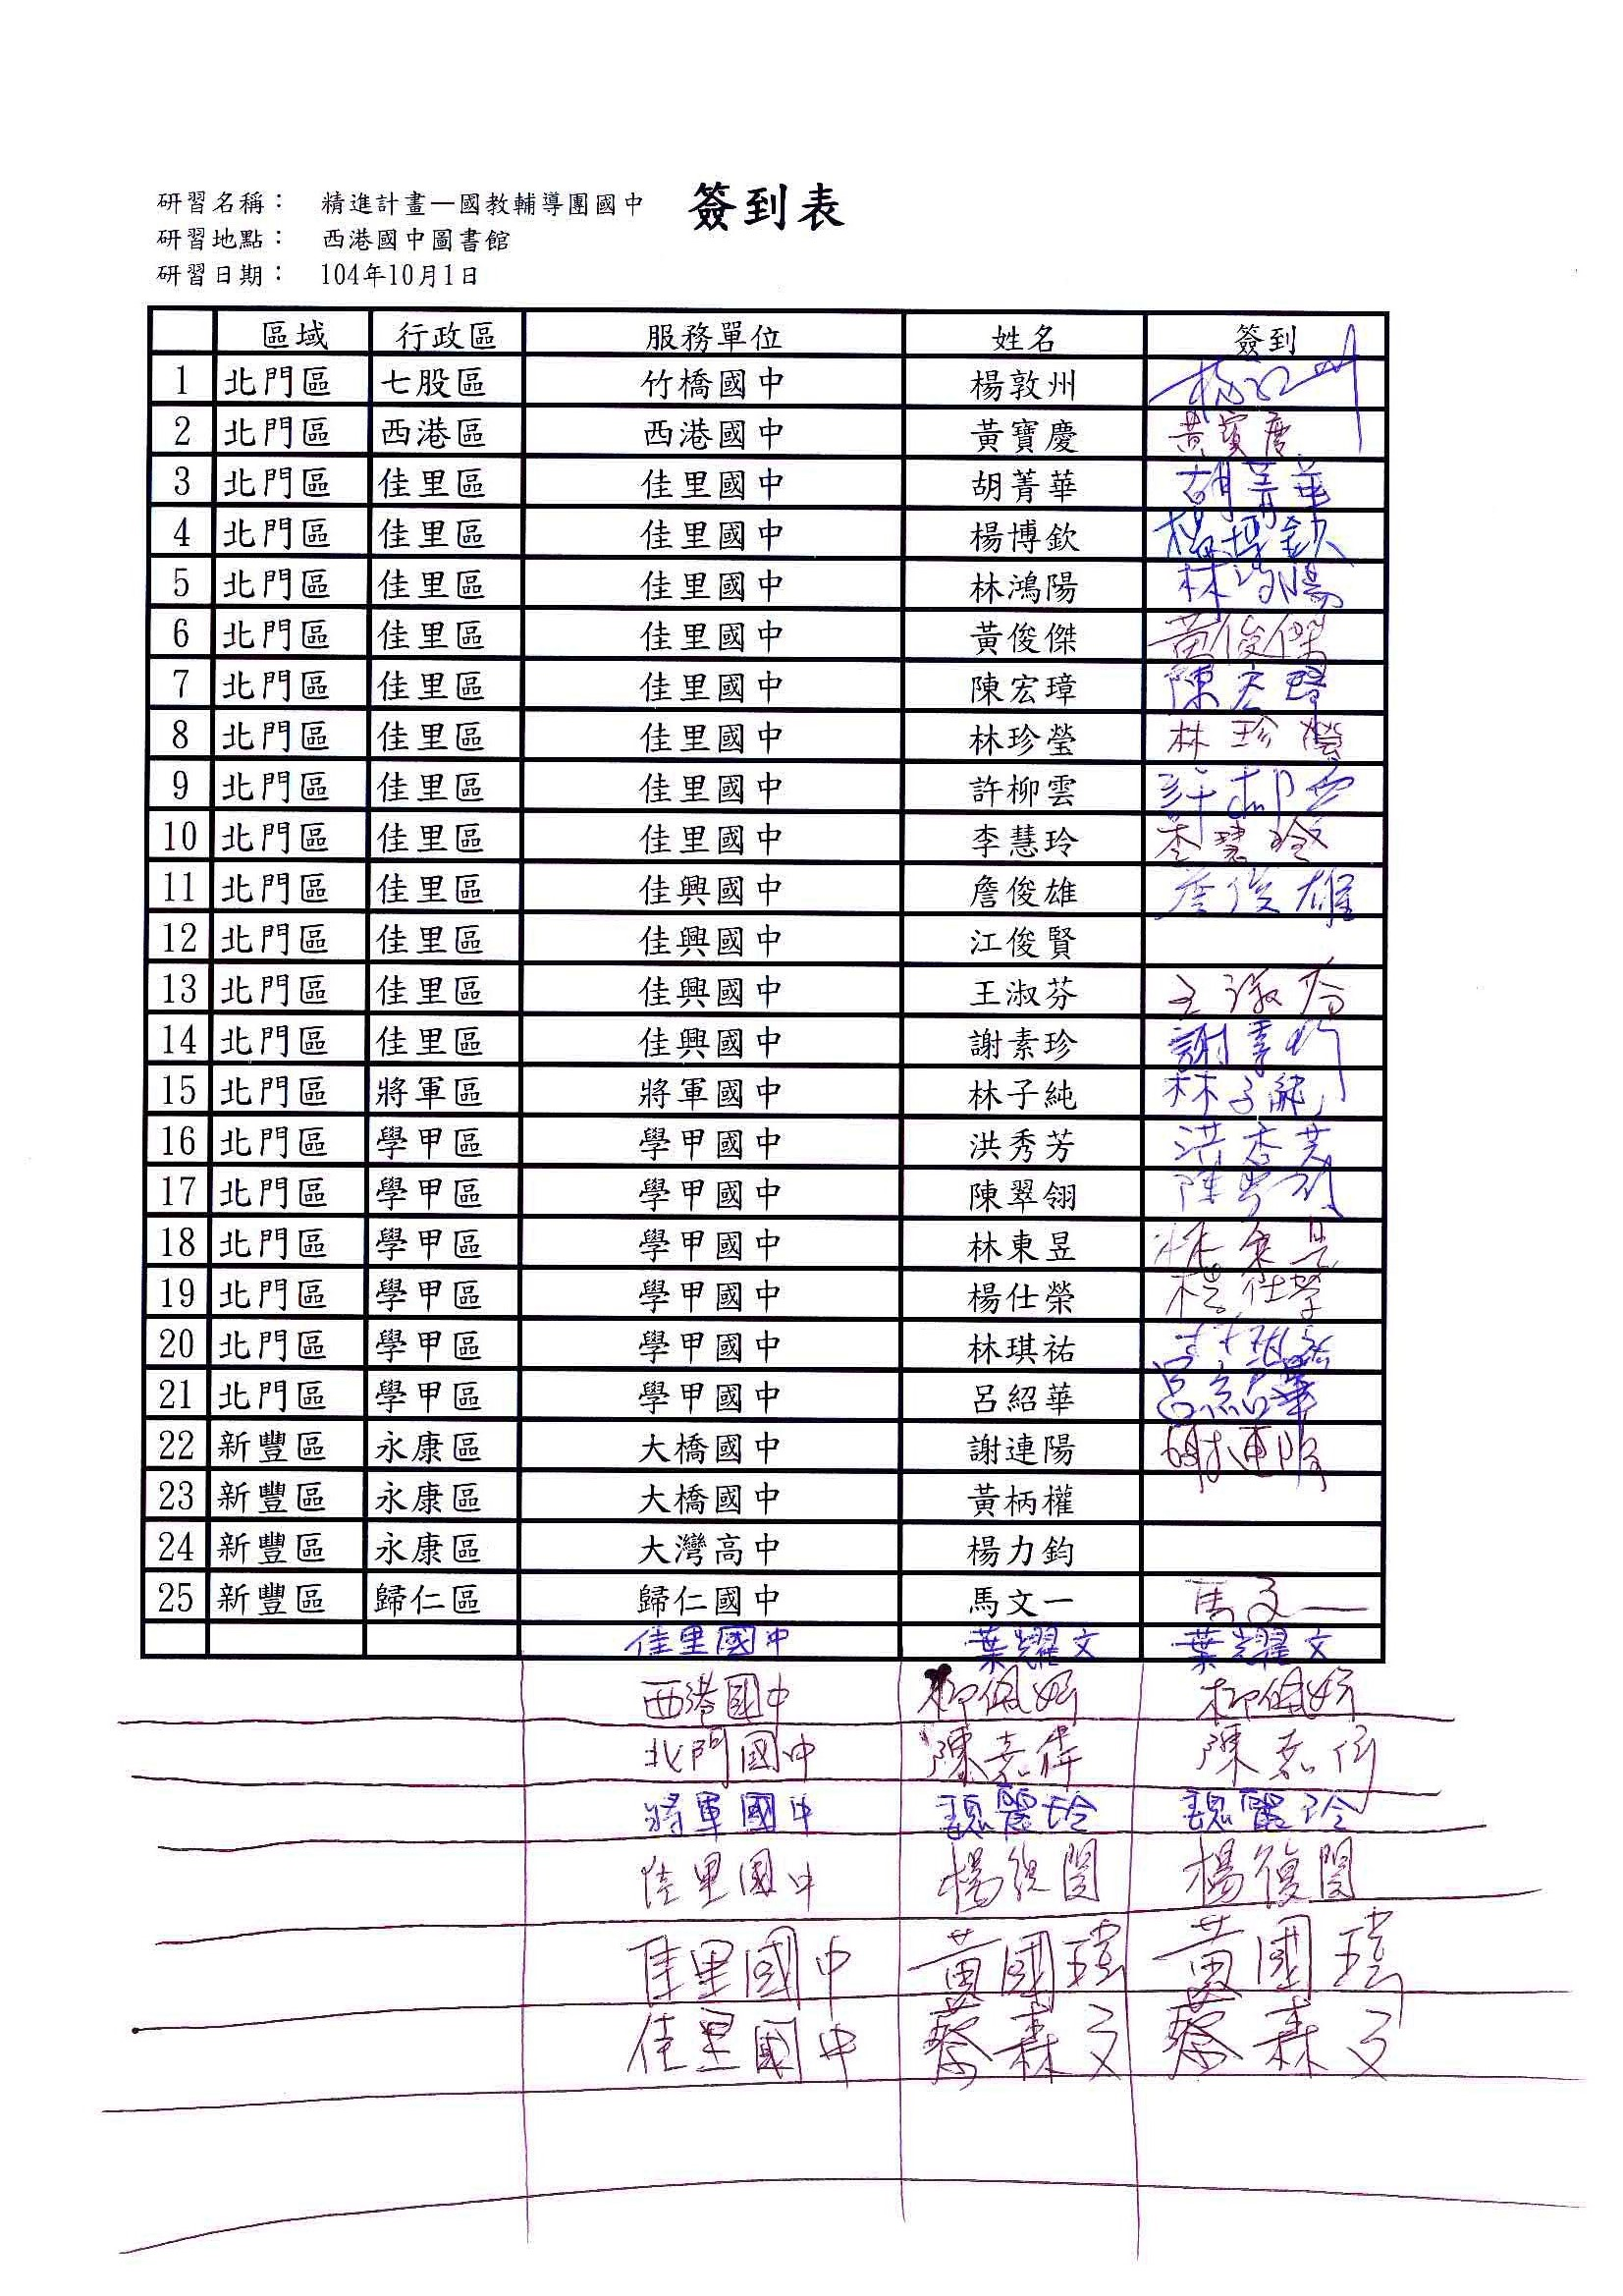 簽到表
研習名稱： 精進計畫—國教輔導團國中
研習地點： 西港國中圖書館
研習日期： 104年10月1日
區域 行政區 服務單位 姓名 簽到
1 北門區 七股區 竹橋國中 楊敦州
2 北門區 西港區 西港國中 黃寶慶 黃寶慶
3 北門區 佳里區 佳里國中 胡菁華 胡菁華
4 北門區 佳里區 佳里國中 楊博欽 楊博欽
5 北門區 佳里區 佳里國中 林鴻陽 林鴻陽
6 北門區 佳里區 佳里國中 黃俊傑 黃俊傑
7 北門區 佳里區 佳里國中 陳宏璋 陳宏璋
8 北門區 佳里區 佳里國中 林珍瑩 林珍瑩
9 北門區 佳里區 佳里國中 許柳雲 許柳雲
10 北門區 佳里區 佳里國中 李慧玲 李慧玲
11 北門區 佳里區 佳興國中 詹俊雄 詹俊雄
12 北門區 佳里區 佳興國中 江俊賢
13 北門區 佳里區 佳興國中 王淑芬 王淑芬
14 北門區 佳里區 佳興國中 謝素珍 謝素珍
15 北門區 將軍區 將軍國中 林子純 林子純
16 北門區 學甲區 學甲國中 洪秀芳 洪秀芳
17 北門區 學甲區 學甲國中 陳翠翎 陳翠翎
18 北門區 學甲區 學甲國中 林東昱 林東昱
19 北門區 學甲區 學甲國中 楊仕榮 楊仕榮
20 北門區 學甲區 學甲國中 林琪祐 林琪祐
21 北門區 學甲區 學甲國中 呂紹華 呂紹華
22 新豐區 永康區 大橋國中 謝連陽 謝連陽
23 新豐區 永康區 大橋國中 黃柄權
24 新豐區 永康區 大灣高中 楊力鈞
25 新豐區 歸仁區 歸仁國中 馬文一 馬文一
佳里國中 葉耀文 葉耀文
西港國中 柳佩妤 柳佩妤
北門國中 陳嘉偉 陳嘉偉
將軍國中 魏麗玲 魏麗玲
佳里國中 楊復閔 楊復閔
佳里國中 黃國瑋 黃國瑋
佳里國中 蔡森文 蔡森文